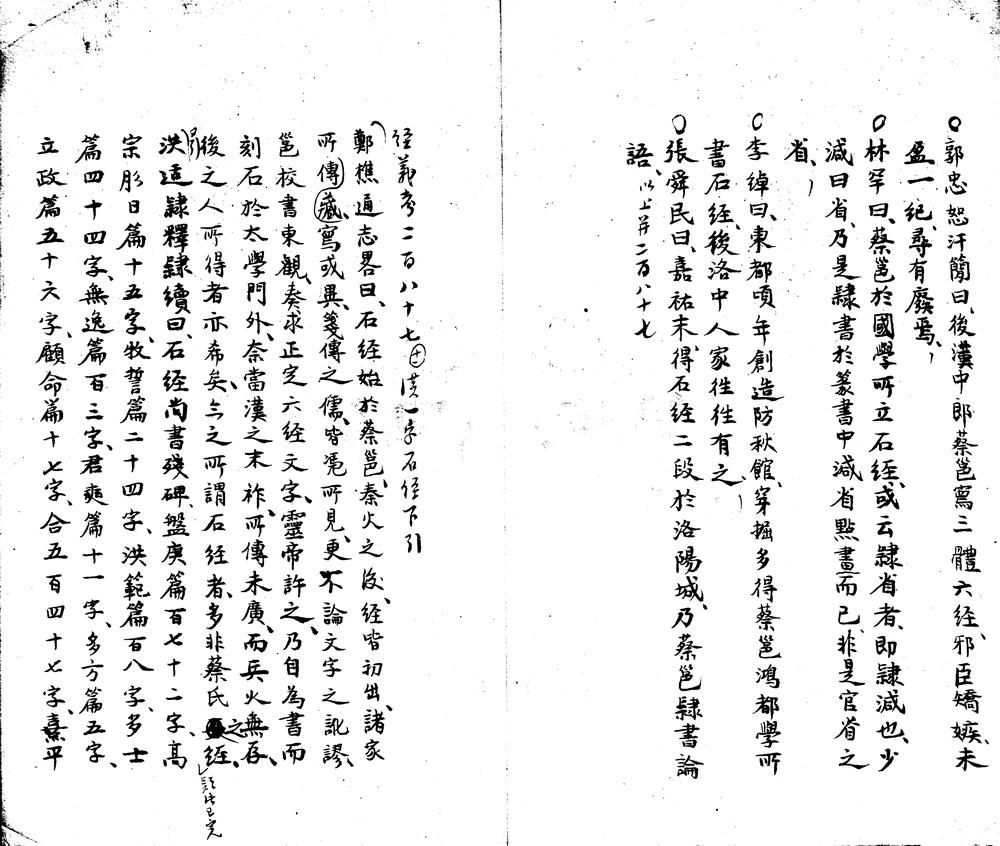 ○郭忠恕汗簡曰、後漢中郎蔡邕寫三體六经、邪臣矯嫉、未
盈一紀、尋有廢焉、
○林罕曰、蔡邕於國學所立石经、或云隸省者、即隸減也、少
減曰省、乃是隸書於篆書中減省點畫而已、非是官省之
省、
○李綽曰、東都頃年創造防秋館、穿掘多得蔡邕鴻都學所
書石经、後洛中人家徃徃有之、
○張舜民曰、嘉祐末、得石经二段於洛陽城、乃蔡邕隸書論
語、以上并二百八十七
経義考二百八十七 漢一字石経下引
鄭樵通志畧曰、石经始於蔡邕、秦火之後、经皆初出、諸家
所傳藏寫或異、箋傳之儒、皆凭所見、更不論文字之訛謬、
邕校書東觀、奏求正定六经文字、靈帝許之、乃自為書而
刻石於太學門外、奈當漢之末祚、所傳未廣、而兵火無存、
後之人所得者亦希矣、今之所謂石经者、多非蔡氏之经、
洪适隸釋隸續曰、石经尚書殘碑、盤庚篇百七十二字、高
宗肜日篇十五字、牧誓篇二十四字、洪範篇百八字、多士
篇四十四字、無逸篇百三字、君奭篇十一字、多方篇五字、
立政篇五十六字、顧命篇十七字、合五百四十七字、熹平